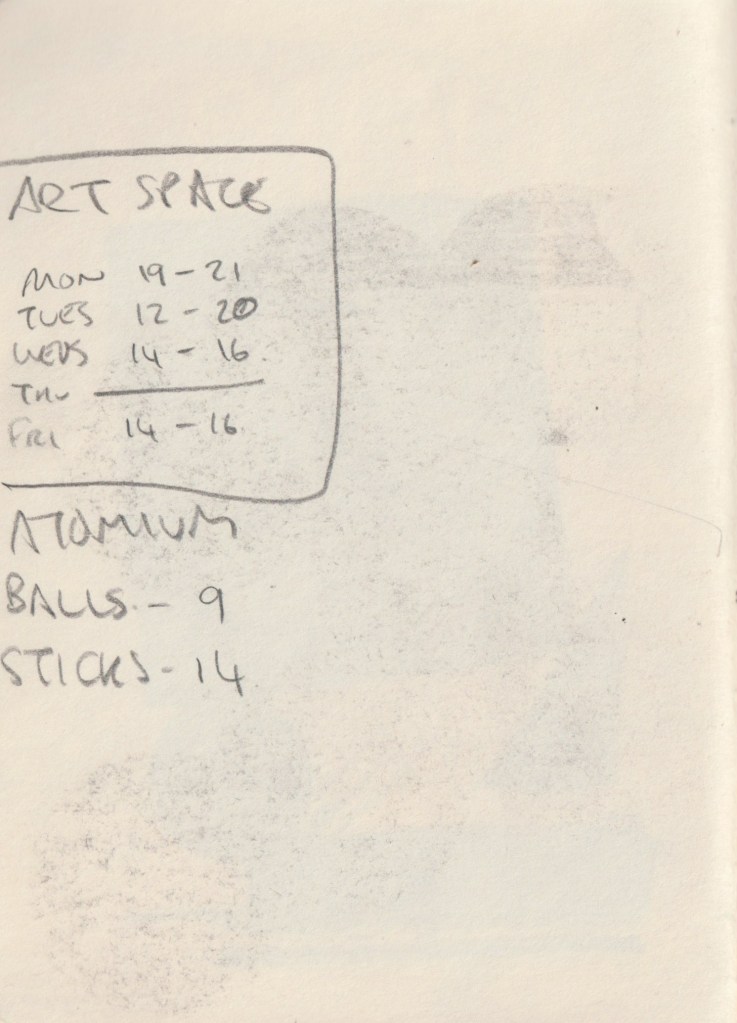 ART SPACE
MON 19 - 21
TUES 12 - 20
WEDS 14 - 16
THU —
FRI 14 - 16
ATOMIUM
BALLS - 9
STICKS - 14